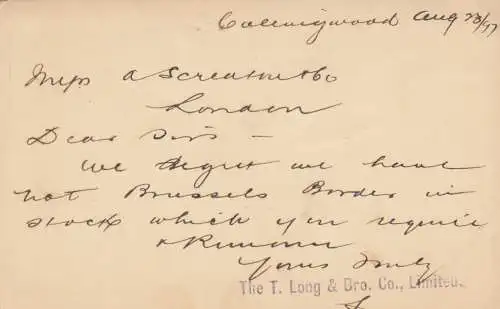 Collingwood Aug 23/97
Messrs A Screaton & Co
London
Dear Sirs —
We regret we have
not Brussels Border in
stock which you require
& Remain
Yours Truly
The T. Long & Bro. Co., Limited.